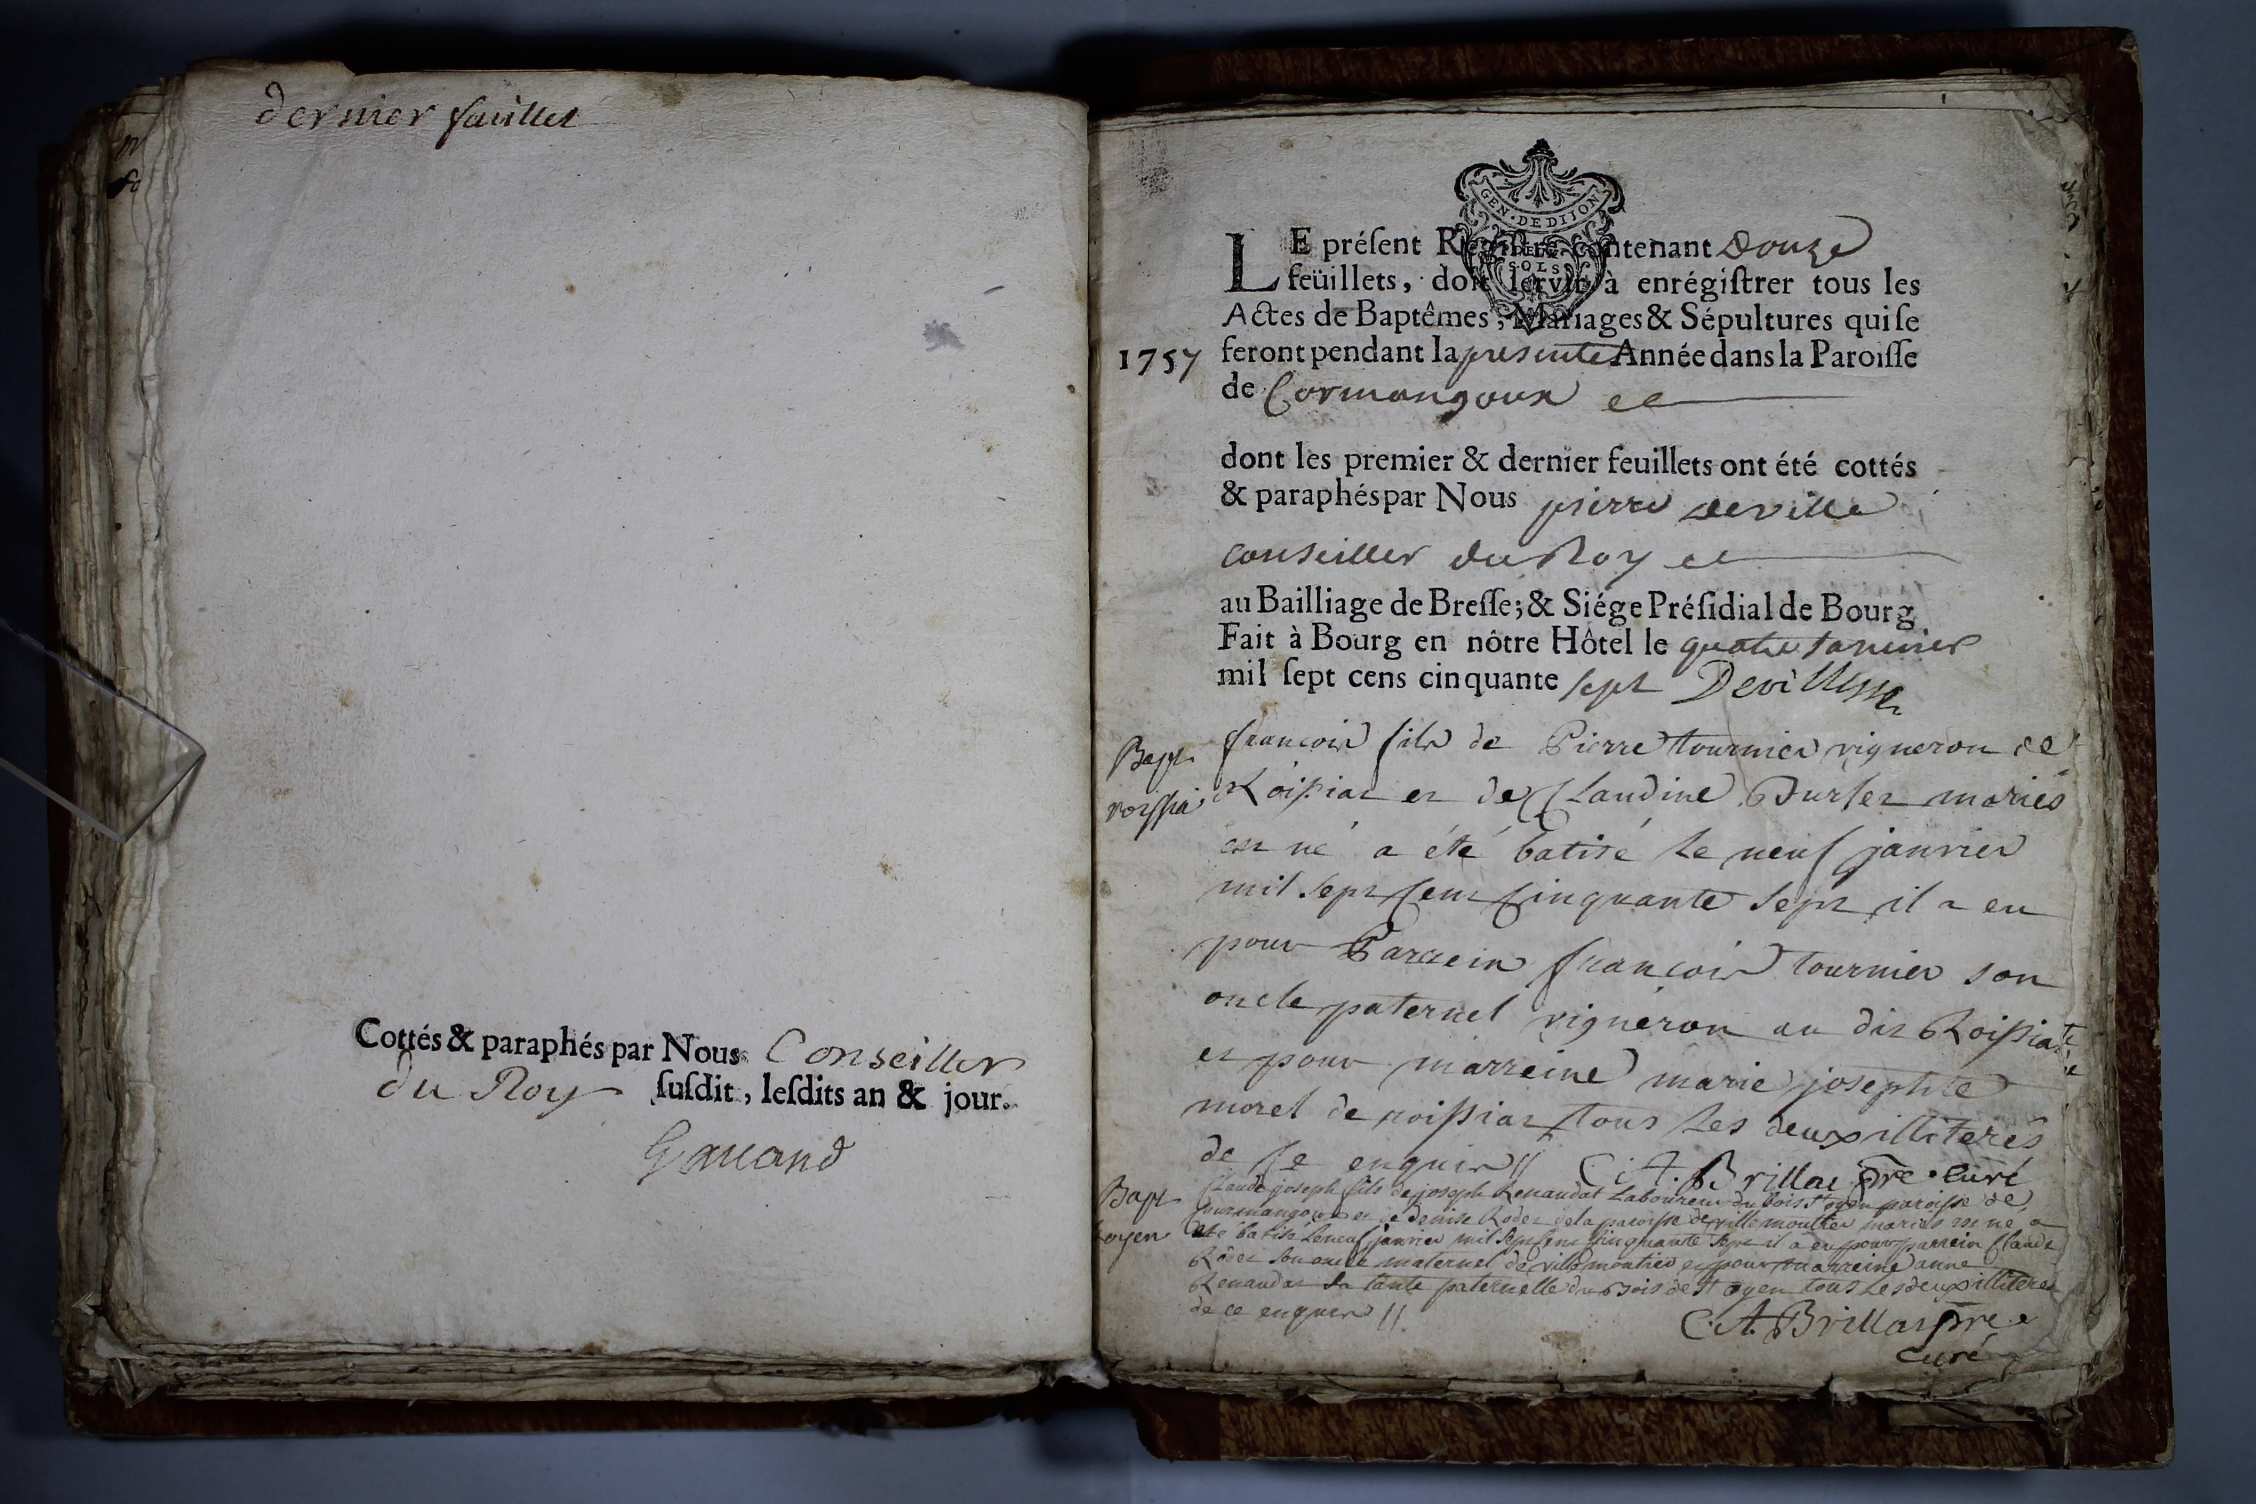 dernier fauillet
Cottés & paraphés par Nous Conseiller
du Roy susdit, lesdits an & jour.
Gauand
GEN. DE DIJON
SOLS
LE présent Registre contenant Douze
feüillets, doit servir à enrégistrer tous les
Actes de Baptêmes, Mariages & Sépultures qui se
1757 feront pendant la presente Année dans la Paroisse
de Cormangoux et
dont les premier & dernier feuillets ont été cottés
& paraphés par Nous pierre deville
conseiller du Roy et
au Bailliage de Bresse; & Siége Présidial de Bourg
Fait à Bourg en nôtre Hôtel le quatre Janvier
mil sept cens cinquante sept Deville
Bapt
roissia
francois fils de Pierre tournier vigneron de
Roissiat et de Claudine Burtet mariés
est né a été batisé le neuf janvier
mil sept cent cinquante sept il a eu
pour Parrein francois tournier son
oncle paternel vigneron au dit Roissiat
et pour marreine marie josephte
morel de roissiat tous les deux illiterés
de ce enquis // C. A. Brillat pre. curé
Bapt
toyen
Claude joseph fils de joseph Renaudat Laboureur du bois st oyen paroisse de
Courmangoux et de denise Rodet de la paroisse de villemoutier mariés est né a
été batisé le neuf janvier mil sept cent cinquante sept il a eu pour parrein Claude
Rodet son oncle maternel de villemoutier et pour marreine anne
Renaudat sa tante paternelle du Bois de st oyen tous les deux illiterés
de ce enquis //
C. A. Brillat pre
curé